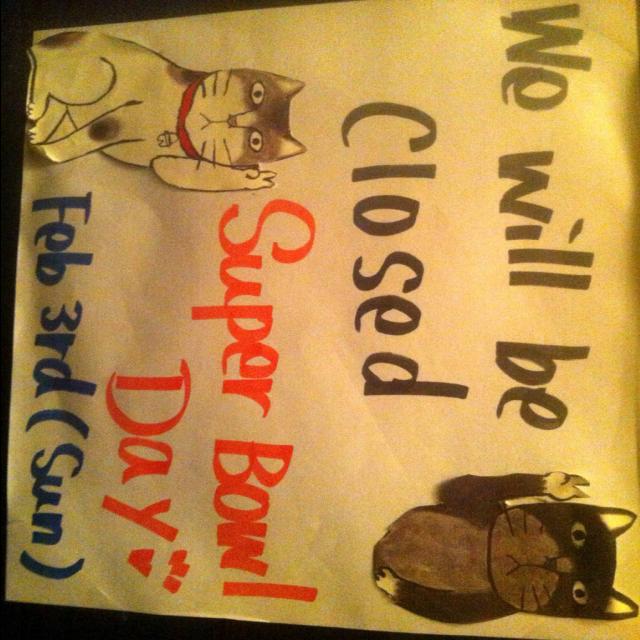 We will be
Closed
Super Bowl
Day
Feb 3rd (Sun)